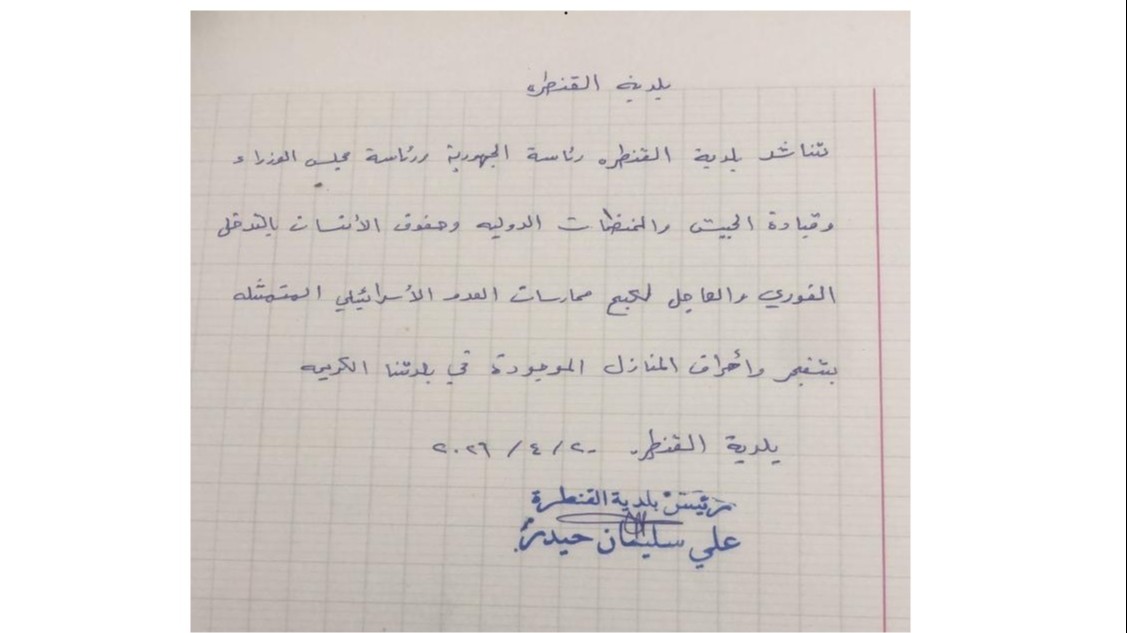 بلدية القنطره
تناشد بلدية القنطره رئاسة الجهورية ورئاسة مجلس الوزراء
وقيادة الجيش والمنضمات الدوليه وحقوق الأنسان بالتدخل
الفوري والعاجل لكبح ممارسات العدو الأسرائيلي المتمثله
بتفجير وأحراق المنازل الموجودة في بلدتنا الكريمه
بلدية القنطره ٢٠ / ٤ / ٢٠٢٦
رئيس بلدية القنطرة
علي سليمان حيدر